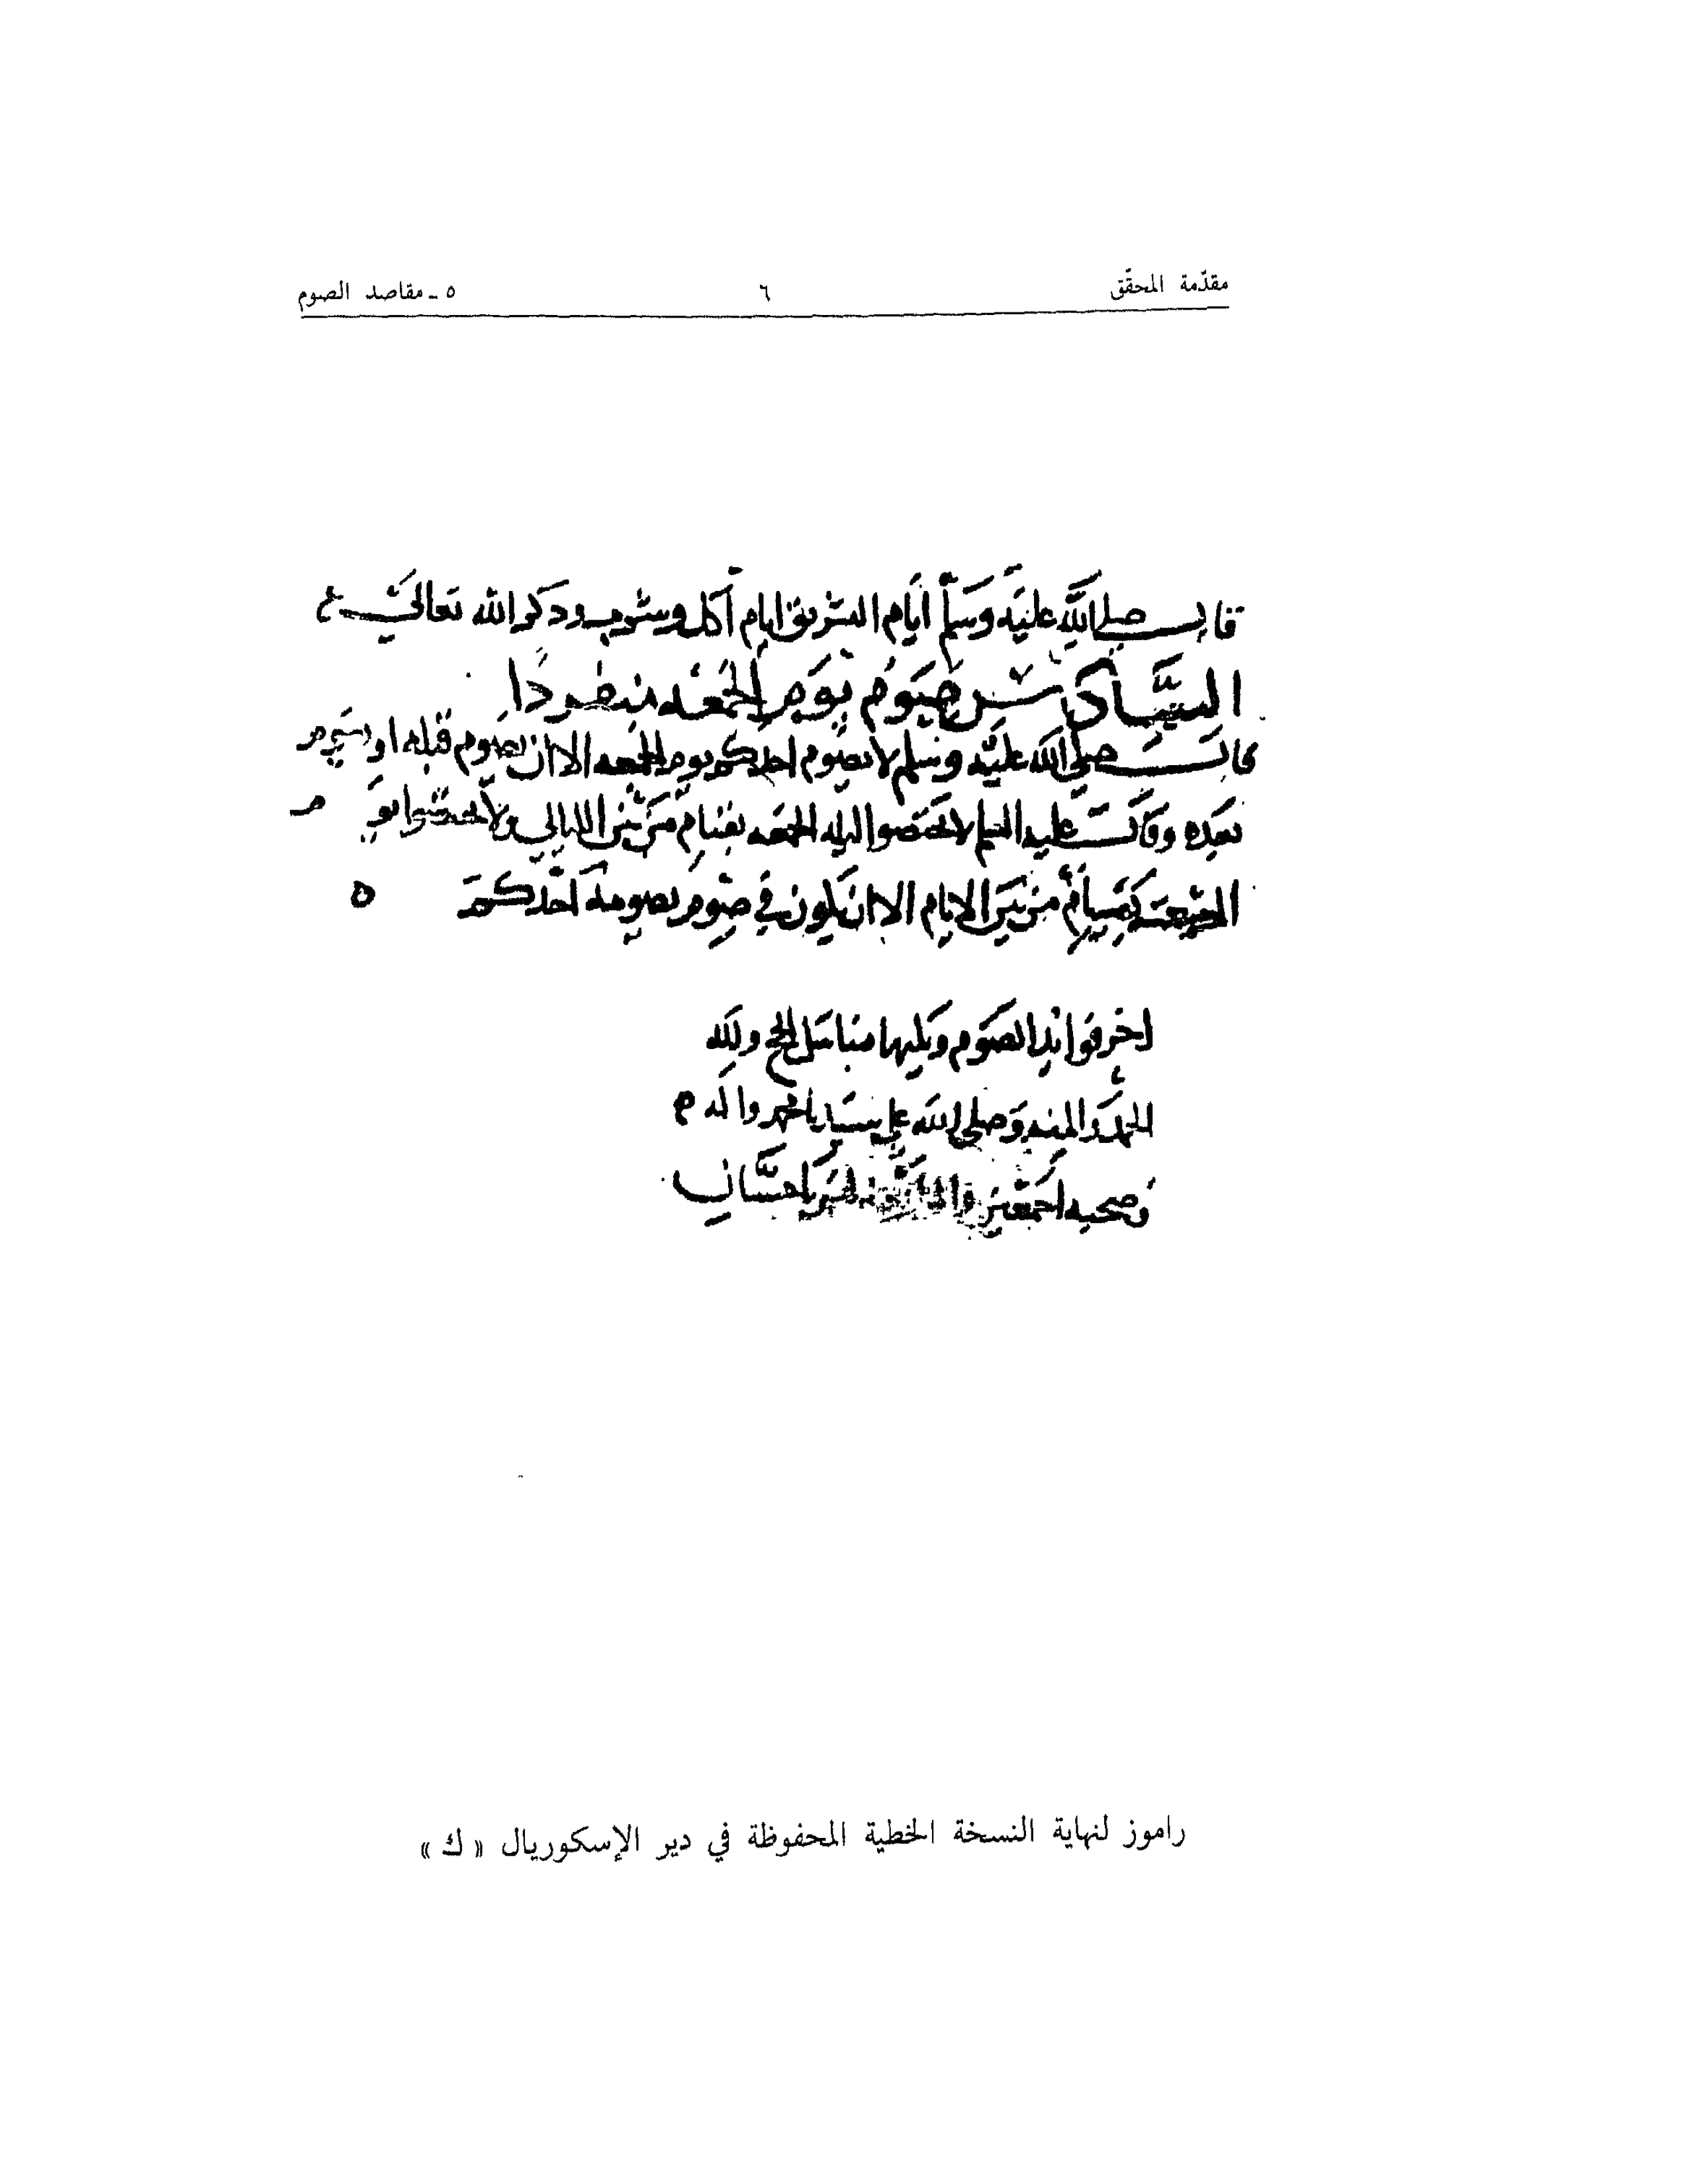 مقدّمة المحقّق ٦ ٥ ـ مقاصد الصوم
قال صلى الله عليه وسلم أيام التشريق ايام أكل وشرب وذكر الله تعالى
السادس صوم يوم الجمعه منفردا
قال صلى الله عليه وسلم لا يصوم احدكم يوم الجمعه الا ان يصوم قبله او يصوم
بعده وقال عليه السلم لا تختصوا ليله الجمعه بقيام من بين الليالي ولا تختصوا يوم
الجمعة بصيام من بين الايام الا ان يكون في صوم يصومه احدكم ٥
اخر فوائد الصوم ويليها مناسك الحج ولله
الحمد والمنه وصلى الله على سيدنا محمد واله
وصحبه اجمعين باحسان
راموز لنهاية النسخة الخطية المحفوظة في دير الإسكوريال « ك »